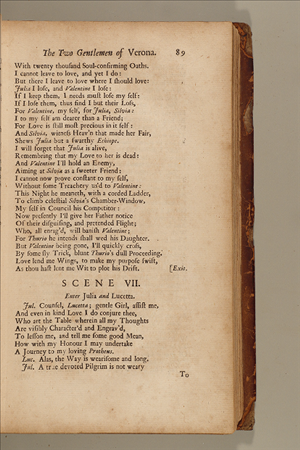 The Two Gentlemen of Verona. 89
With twenty thouſand Soul-confirming Oaths.
I cannot leave to love, and yet I do:
But there I leave to love where I ſhould love:
Julia I loſe, and Valentine I loſe:
If I keep them, I needs muſt loſe my ſelf:
If I loſe them, thus find I but their Loſs,
For Valentine, my ſelf, for Julia, Silvia:
I to my ſelf am dearer than a Friend;
For Love is ſtill moſt precious in it ſelf:
And Silvia, witneſs Heav'n that made her Fair,
Shews Julia but a ſwarthy Ethiope.
I will forget that Julia is alive,
Remembring that my Love to her is dead:
And Valentine I'll hold an Enemy,
Aiming at Silvia as a ſweeter Friend:
I cannot now prove conſtant to my ſelf,
Without ſome Treachery us'd to Valentine:
This Night he meaneth, with a corded Ladder,
To climb celeſtial Silvia's Chamber-Window,
My ſelf in Council his Competitor:
Now preſently I'll give her Father notice
Of their diſguiſing, and pretended Flight;
Who, all enrag'd, will baniſh Valentine;
For Thurio he intends ſhall wed his Daughter.
But Valentine being gone, I'll quickly croſs,
By ſome ſly Trick, blunt Thurio's dull Proceeding.
Love lend me Wings, to make my purpoſe ſwift,
As thou haſt lent me Wit to plot his Drift. [Exit.
SCENE VII.
Enter Julia and Lucetta.
Jul. Counſel, Lucetta; gentle Girl, aſſiſt me,
And even in kind Love I do conjure thee,
Who art the Table wherein all my Thoughts
Are viſibly Character'd and Engrav'd,
To leſſon me, and tell me ſome good Mean,
How with my Honour I may undertake
A Journey to my loving Protheus.
Luc. Alas, the Way is weariſome and long.
Jul. A true devoted Pilgrim is not weary
To